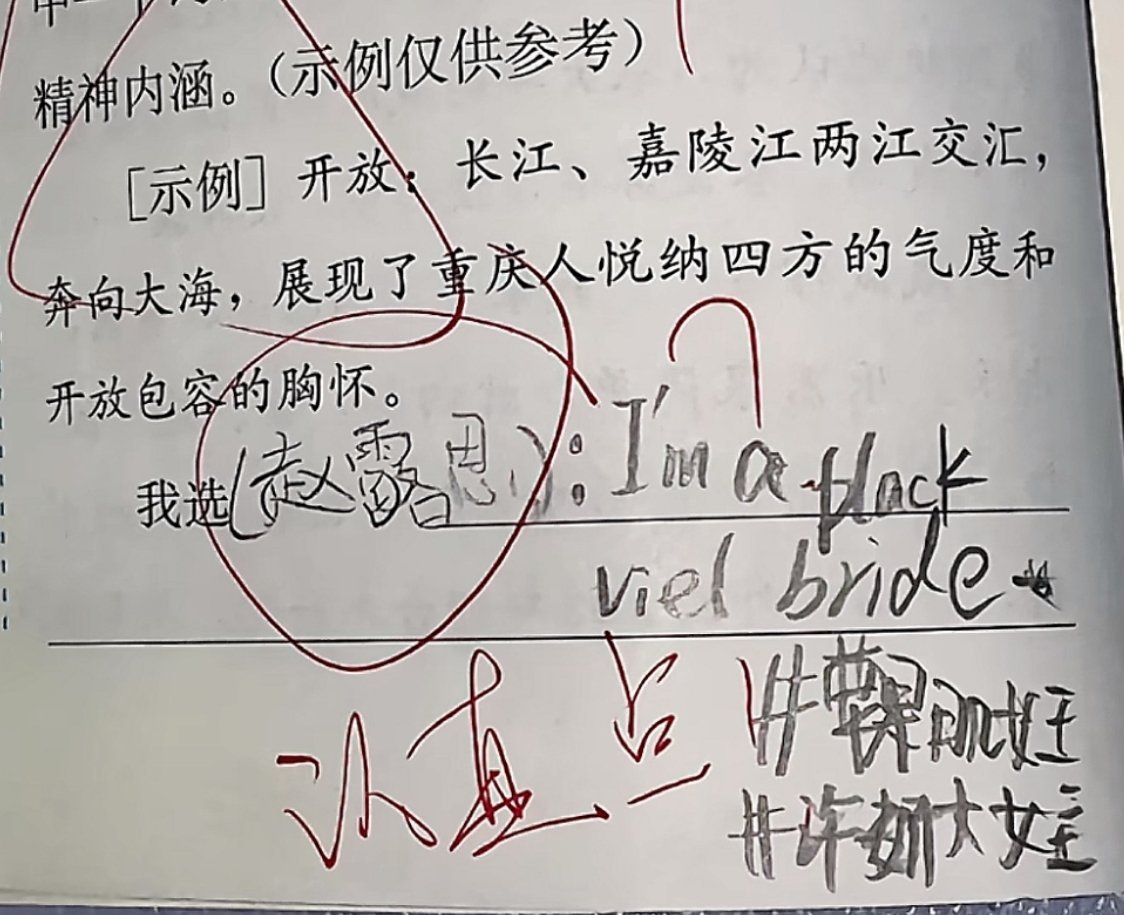 精神内涵。（示例仅供参考）
［示例］开放：长江、嘉陵江两江交汇，
奔向大海，展现了重庆人悦纳四方的气度和
开放包容的胸怀。
我选(赵露思)：I'm a plack
viel bride
认真点
#许妍大女主